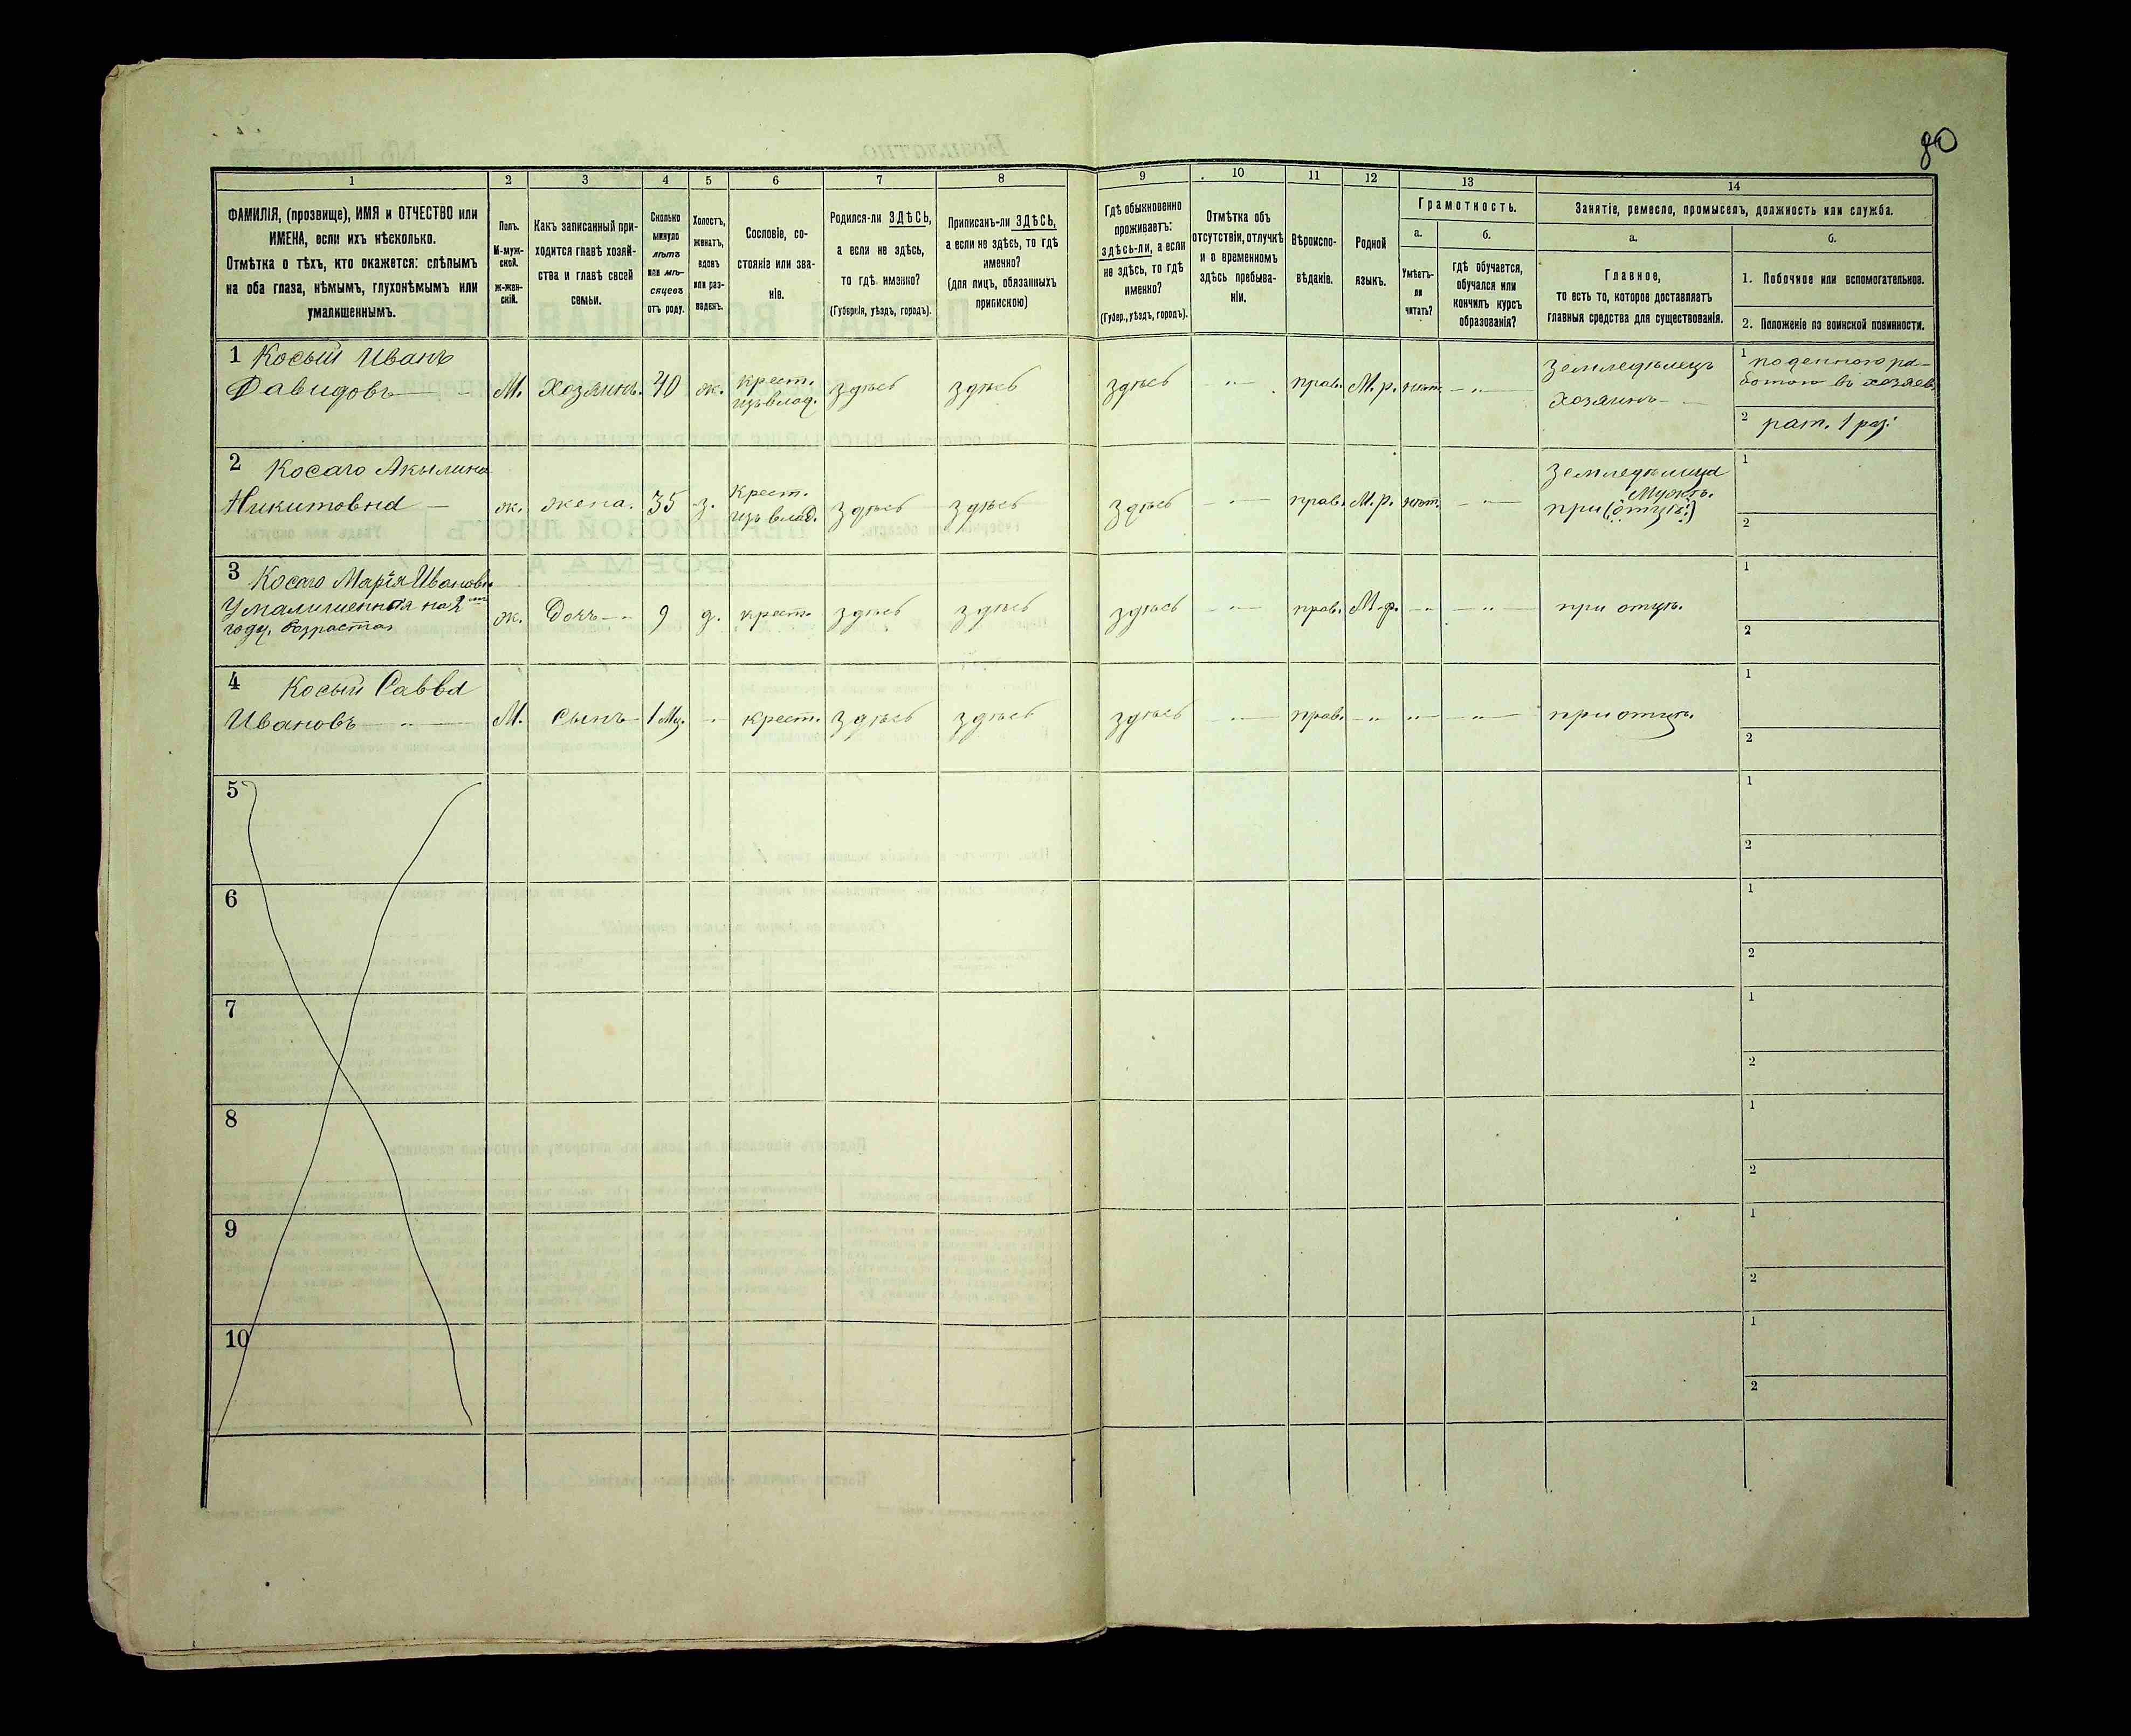 80
1 2 3 4 5 6 7 8 9 10 11 12 13 14
ФАМИЛІЯ, (прозвище), ИМЯ и ОТЧЕСТВО или
ИМЕНА, если ихъ нѣсколько.
Отмѣтка о тѣхъ, кто окажется: слѣпымъ
на оба глаза, нѣмымъ, глухонѣмымъ или
умалишеннымъ.
Полъ.
М-муж-
ской.
ж-жен-
скій.
Какъ записанный при-
ходится главѣ хозяй-
ства и главѣ своей
семьи.
Сколько
минуло
лѣтъ
или мѣ-
сяцевъ
отъ роду.
Холостъ,
женатъ,
вдовъ
или раз-
веденъ.
Сословіе, со-
стояніе или зва-
ніе.
Родился-ли ЗДѢСЬ,
а если не здѣсь,
то гдѣ именно?
(Губернія, уѣздъ, городъ).
Приписанъ-ли ЗДѢСЬ,
а если не здѣсь, то гдѣ
именно?
(для лицъ, обязанныхъ
припискою)
Гдѣ обыкновенно
проживаетъ:
здѣсь-ли, а если
не здѣсь, то гдѣ
именно?
(Губер., уѣздъ, городъ).
Отмѣтка объ
отсутствіи, отлучкѣ
и о временномъ
здѣсь пребыва-
ніи.
Вѣроиспо-
вѣданіе.
Родной
языкъ.
Грамотность.
а.
Умѣетъ-
ли
читать?
б.
гдѣ обучается,
обучался или
кончилъ курсъ
образованія?
Занятіе, ремесло, промыселъ, должность или служба.
а.
Главное,
то есть то, которое доставляетъ
главныя средства для существованія.
б.
1. Побочное или вспомогательное.
2. Положеніе по воинской повинности.
1 Косый Иванъ
Давидовъ — М. Хозяинъ. 40 ж. крест. изъ влад. здѣсь здѣсь здѣсь — " — прав. М.р. нѣт. — " — Земледѣлецъ
хозяинъ —
1 поденною ра-
ботою въ хозяев.
2 рат. 1 раз.
2 Косаго Акылина
Никитовна — ж. жена. 35 з. Крест. изъ влад. здѣсь здѣсь здѣсь — " — прав. М.р. нѣт. — " — Земледѣлица
при (отцѣ.) мужѣ.
1
2
3 Косаго Марія Ивановн
Умалишенная на 2 мъ
году возраста ж. Дочь — 9 д. крест. здѣсь здѣсь здѣсь — " — прав. М.р. — " — — " — при отцѣ.
1
2
4 Косый Савва
Ивановъ — " — М. Сынъ — 1 Мц. — крест. здѣсь здѣсь здѣсь — " — прав. — " — — " — — " — при отцѣ.
1
2
5
1
2
6
1
2
7
1
2
8
1
2
9
1
2
10
1
2